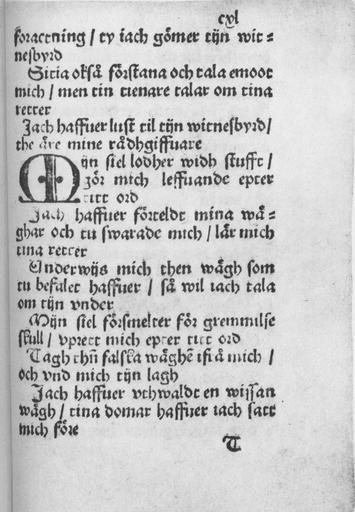 cxl
foractning / ty iach gömer tijn wit=
nesbyrd
Sitia okså förstana och tala emoot
mich / men tin tienare talar om tina
retter
Jach haffuer lust til tijn witnesbyrd/
the äre mine rådhgiffuare
Mijn siel lodher widh stufft /
gör mich leffuande epter
titt ord
Jach haffuer förteldt mina wä=
ghar och tu swarade mich / lär mich
tina retter
Underwijs mich then wägh som
tu befalet haffuer / så wil iach tala
om tijn vnder
Mijn siel försmelter för gremmilse
skull / vprett mich epter titt ord
Tagh thñ falska wäghẽ ifrå mich /
och vnd mich tijn lagh
Jach haffuer vthwaldt en wissan
wägh / tina domar haffuer iach satt
mich före
T